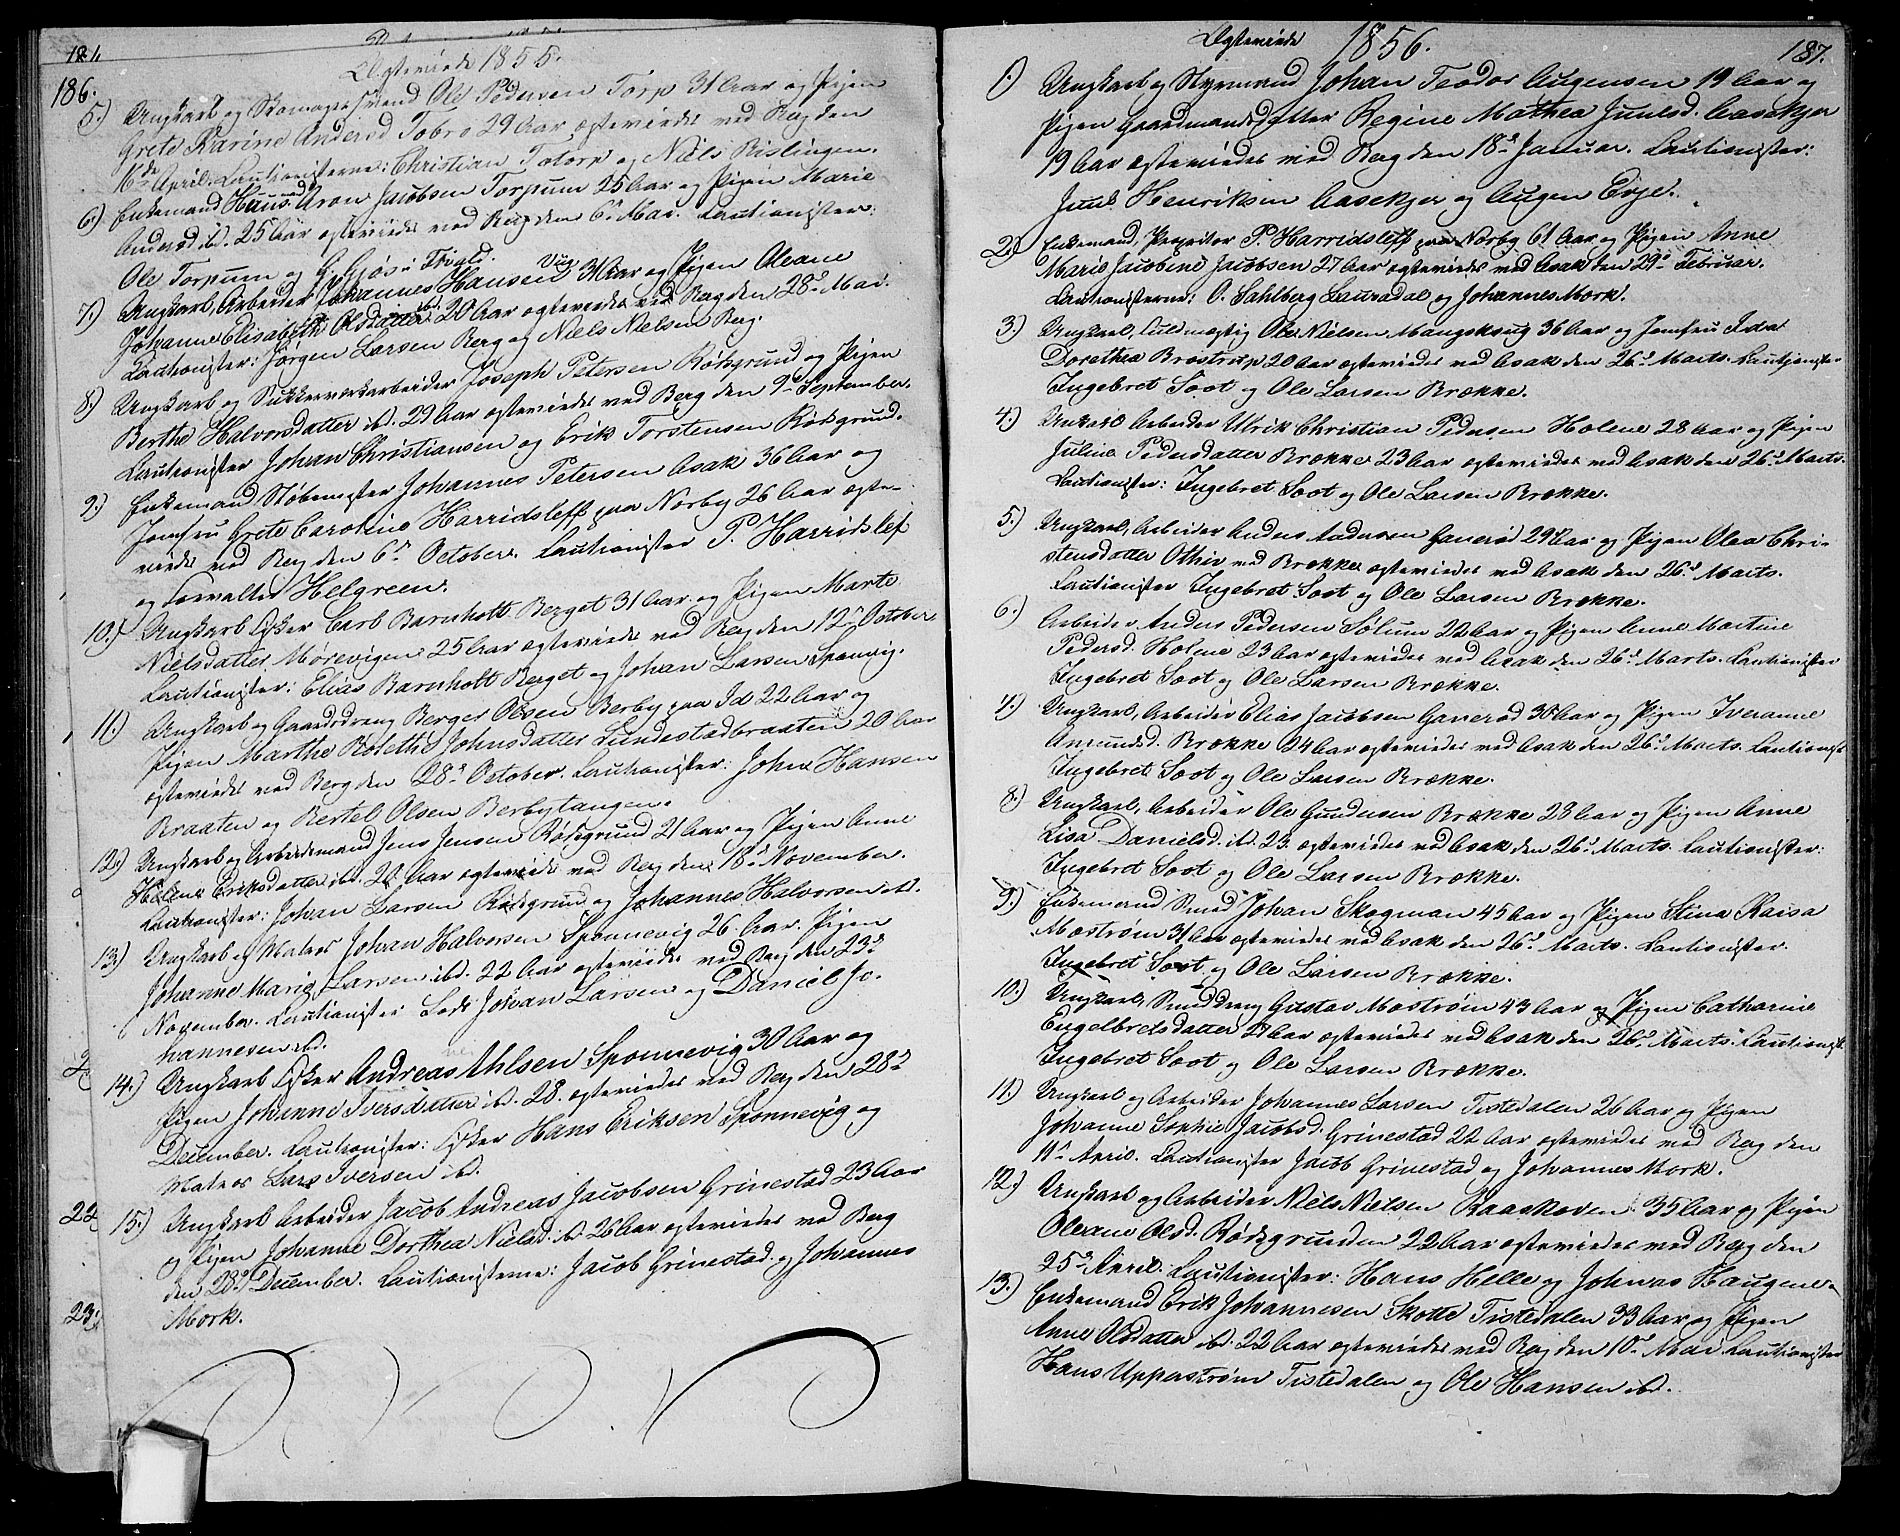 186.
Ægteviede 1855.
5.) Ungkarl og Skomagersvend Ole Pedersen Torp 31 Aar og Pigen
Grete Karine Andersd Tobro 29 Aar ægteviede ved Berg den
16de April. Cautionisterne: Christian Totorp og Niels Rislingen.
6.) Enkemand Huusmd Aron Jacobsen Torpum 25 Aar og Pigen Marie
Andersd ibd. 25 Aar ægteviede ved Berg den 6te Mai. Cautionister:
Ole Torpum og G. Gjøs i Frhald.
7.) Ungkarl, Arbeider Johannes Hansen Viig 31 Aar og Pigen Oleane
Johanne Elisabeth Olsdatter ibd. 20 Aar ægteviede ved Berg den 28de Mai.
Cautionister: Jørgen Larsen Berg og Niels Nielsen Berg.
8.) Ungkarl og Sukkerverkarbeider Joseph Petersen Rødsgrund og Pigen
Berthe Halvorsdatter ibd. 29 Aar ægteviede ved Berg den 9de September.
Cautionister Johan Christiansen og Erik Torstensen Rødsgrund.
9.) Enkemand Støbemester Johannes Petersen Asak 36 Aar og
Jomfru Grete Caroline Harridsleff paa Norby 26 Aar ægte-
viede ved Berg den 6de October. Cautionister P. Harridslef
og Forvalter Helgreen.
10.) Ungkarl Fisker Carl Barnholt Berget 31 Aar og Pigen Marte
Nielsdatter Mørevigen 25 Aar ægteviede ved Berg den 12te October
Cautionister: Elias Barnholt Berget og Johan Larsen Sponvig.
11.) Ungkarl og Gaardsdreng Berger Olsen Berby paa Id 22 Aar og
Pigen Marthe Rolethe Johnsdatter Lundestadbraaten 20 Aar
ægteviede ved Berg den 28de October. Cautionister: John Hansen
Braaten og Bertel Olsen Berbytangen.
12.) Ungkarl og Arbeidsmand Jens Jensen Rødsgrund 21 Aar og Pigen Anne
Helene Eriksdatter ibd. 20 Aar ægteviede ved Berg den 18de November.
Cautionister: Johan Larsen Rødsgrund og Johannes Halvorsen ibd.
13.) Ungkarl og Matros Johan Halvorsen Sponnevig 26 Aar. Pigen
Johanne Marie Larsen ibd. 22 Aar ægteviede ved Berg den 23de
November. Cautionister Lods Johan Larsen og Daniel Jo-
hannesen ibd.
14.) Ungkarl Fisker Andreas Ahlsen Sponnevig 30 Aar og
Pigen Johanne Iversdatter ibd. 28. ægteviede ved Berg den 28de
December. Cautionister: Fisker Hans Eriksen Sponnevig og
Matros Lars Iversen ibd.
15.) Ungkarl Arbeider Jacob Andreas Jacobsen Grinestad 23 Aar
og Pigen Johanne Dorthea Nielsd. ibd. 26 Aar ægteviede ved Berg
den 28de December. Cautionisterne: Jacob Grinestad og Johannes
Mork.
22
23
Ægteviede 1856. 187.
1.) Ungkarl og Styrmand Johan Teodor Augensen 19 Aar og
Pigen Gaardmandsdatter Regine Mathea Juulsd. Aasekjer
19 Aar ægteviede ved Berg den 18de Januar. Cautionister:
Juul Henriksen Aasekjer og Augen Evje.
2.) Enkemand, Propritær P. Harridsleff paa Norby 61 Aar og Pigen Anne
Marie Jacobine Jacobsen 27 Aar ægteviede ved Asak den 29de Februar.
Cautionisterne: O. Sahlberg Lauradal og Johannes Mork.
3.) Ungkarl, Fuldmægtig Ole Nielsen Mangskoug 36 Aar og Jomfru Ida
Dorothea Brostrup 20 Aar ægteviede ved Asak den 26de Marts. Cautionister
Ingebret Soot og Ole Larsen Brække.
4.) Ungkarl Arbeider Ulrik Christian Pedersen Holene 28 Aar og Pigen
Juline Pedersdatter Brække 23 Aar ægteviede ved Asak den 26de Marts.
Cautionister: Ingebret Soot og Ole Larsen Brække.
5.) Ungkarl, Arbeider Anders Andersen Ganerød 29 Aar og Pigen Olea Chri-
stensdatter Othie ved Brække ægteviede ved Asak den 26de Marts.
Cautionister Ingebret Soot og Ole Larsen Brække.
6.) Arbeider Anders Pedersen Solum 22 Aar og Pigen Anne Martine
Pedersd. Holene 23 Aar ægteviede ved Asak den 26de Marts. Cautionister
Ingebret Soot og Ole Larsen Brække.
7.) Ungkarl, Arbeider Elias Jacobsen Ganerød 30 Aar og Pigen Iveranne
Amundsd. Brække 24 Aar ægteviede ved Asak den 26de Marts. Cautionist
Ingebret Soot og Ole Larsen Brække.
8.) Ungkarl, Arbeider Ole Gundersen Brække 28 Aar og Pigen Anne
Lisa Danielsd. ibd. 23. ægteviede ved Asak den 26de Marts. Cautionister:
Ingebret Soot og Ole Larsen Brække.
9.) Enkemand Smed Johan Skogman 45 Aar og Pigen Stina Kaisa
Mostrøm 31 Aar ægteviede ved Asak den 26de Marts. Cautionister.
Ingebret Soot og Ole Larsen Brække.
10.) Ungkarl, Smeddreng Gustav Mostrøm 43 Aar og Pigen Catharine
Engelbretsdatter 27 Aar ægteviede ved Asak den 26de Marts. Cautionist
Ingebret Soot og Ole Larsen Brække.
11.) Ungkarl og Arbeider Johannes Larsen Tistedalen 26 Aar og Pigen
Johanne Sophie Jacobsd. Grinestad 22 Aar ægteviede ved Berg den
11te April. Cautionister Jacob Grinestad og Johannes Mork.
12.) Ungkarl og Arbeider Niels Nielsen Raaskoven 35 Aar og Pigen
Oleane Olsd. Rødsgrunden 22 Aar ægteviede ved Berg den
25de April. Cautionister: Hans Helle og Johnas Haugene.
13.) Enkemand Erik Johannesen Skotte Tistedalen 33 Aar og Pigen
Anne Olsdatter ibd. 22 Aar ægteviede ved Berg den 10de Mai. Cautionister
Hans Upperstrøm Tistedalen og Ole Hansen ibd.